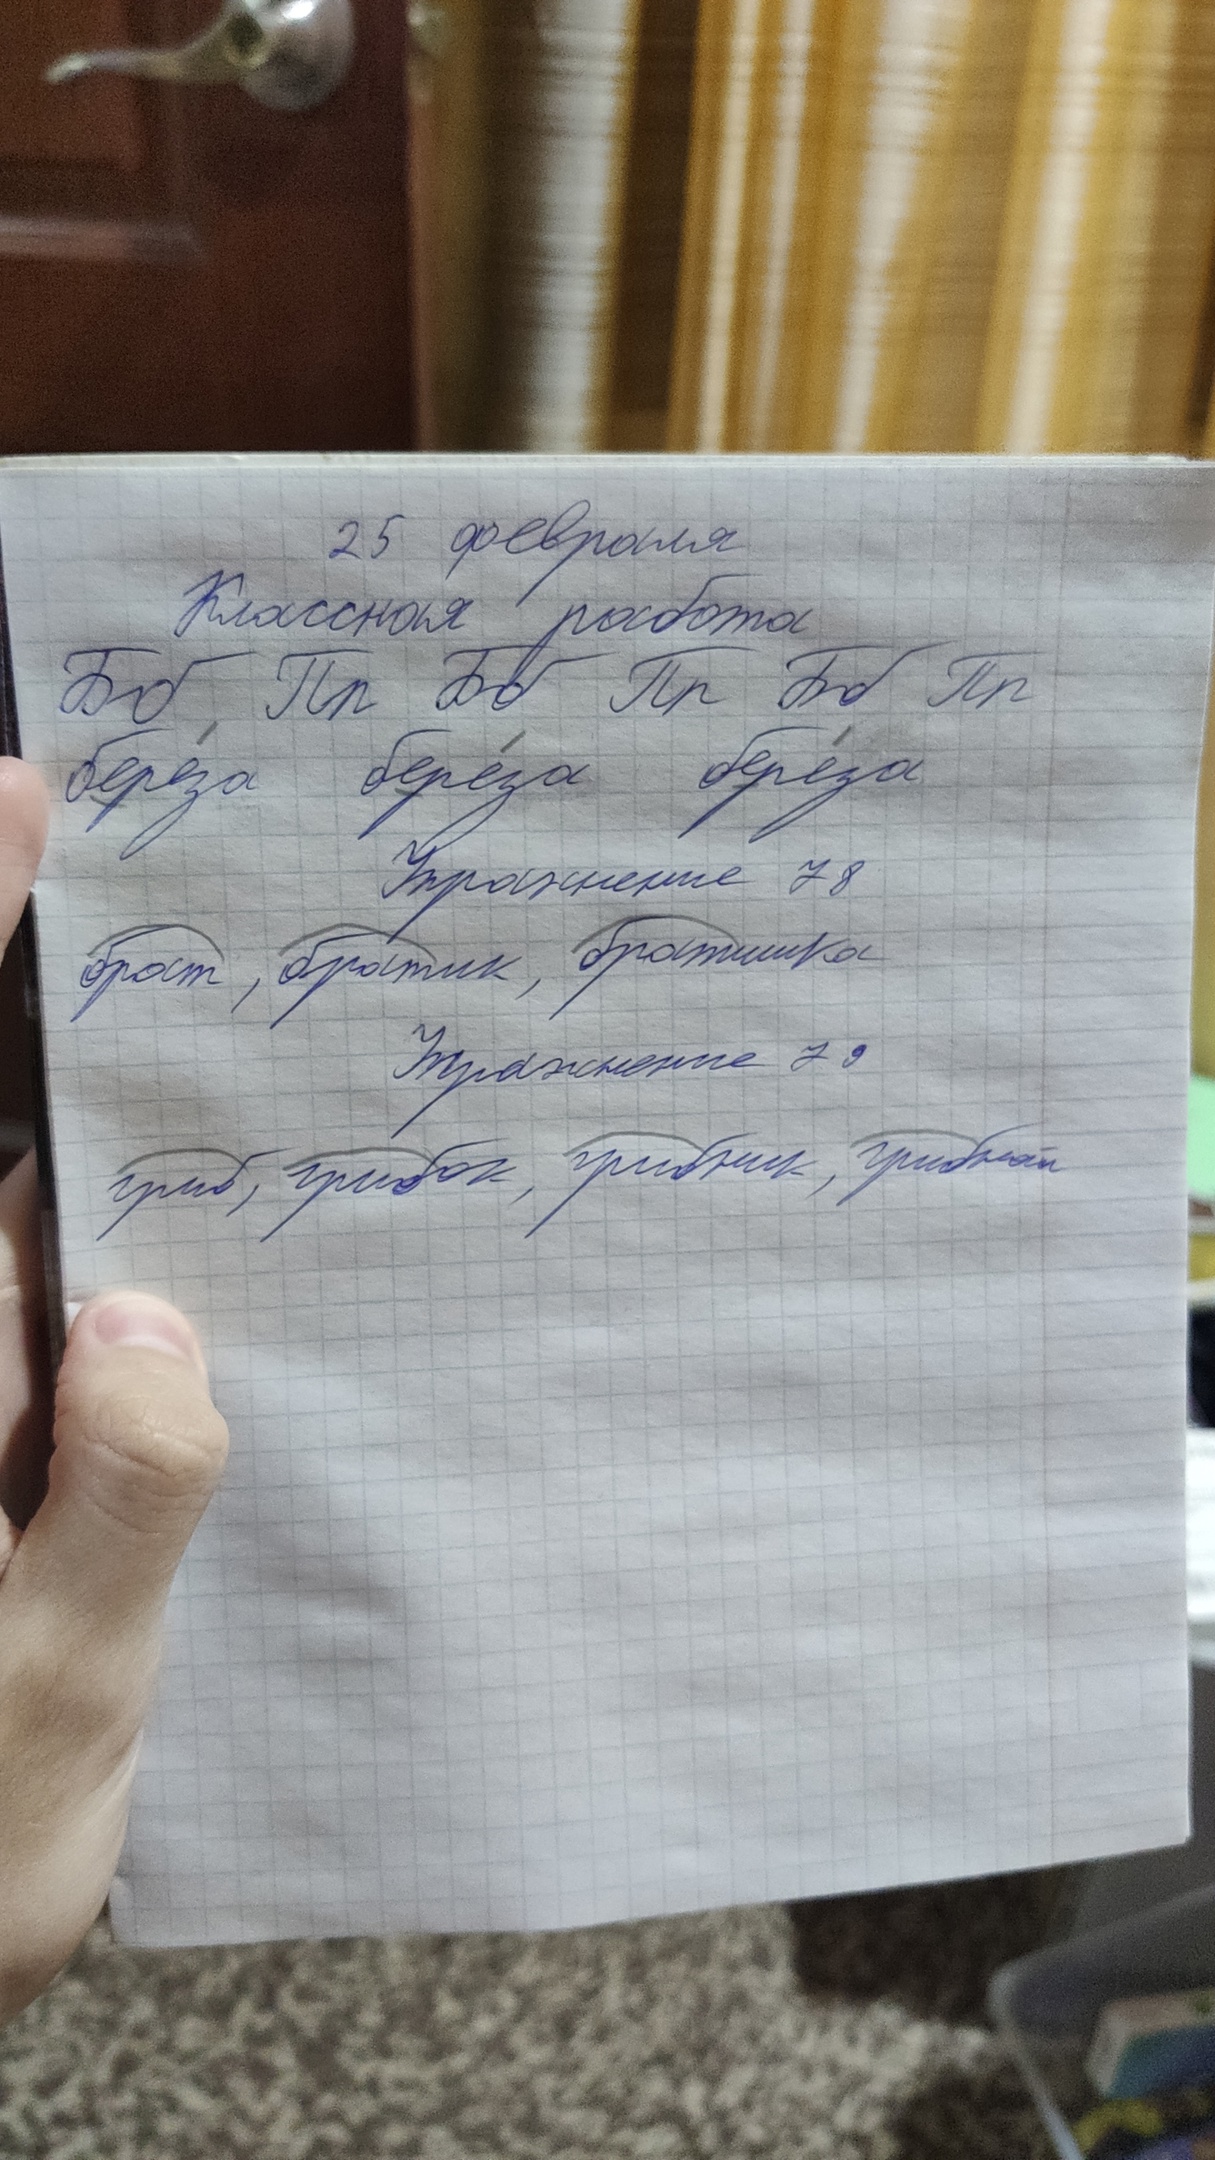 25 февраля
Классная работа
Бб Пп Бб Пп Бб Пп
берéза берéза берéза
Упражнение 78
брат, братик, братишка
Упражнение 79
гриб, грибок, грибник, грибной